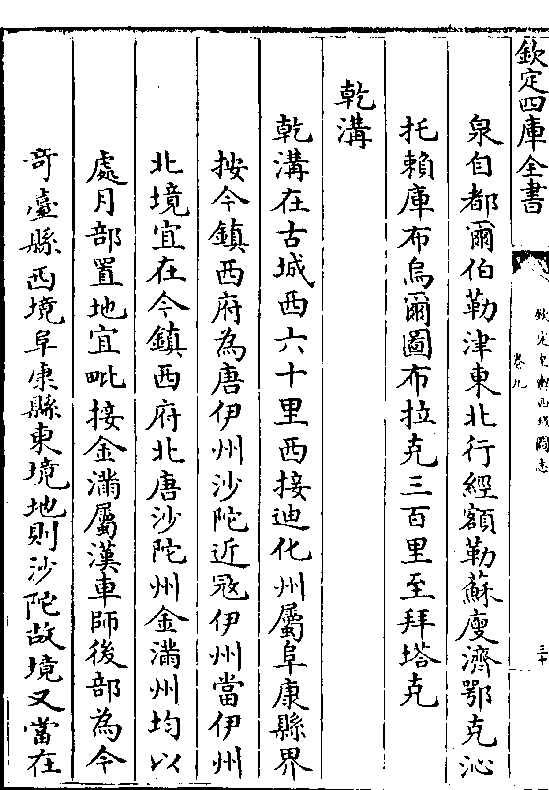 欽定四庫全書
欽定皇輿西域圖志
卷九
三十
泉自都爾伯勒津東北行經額勒蘇廋濟鄂克沁
托賴庫布烏爾圖布拉克三百里至拜塔克
乾溝
乾溝在古城西六十里西接迪化州屬阜康縣界
按今鎮西府為唐伊州沙陀近寇伊州當伊州
北境宜在今鎮西府北唐沙陀州金滿州均以
處月部置地宜毗接金滿屬漢車師後部為今
竒臺縣西境阜康縣東境地則沙陀故境又當在